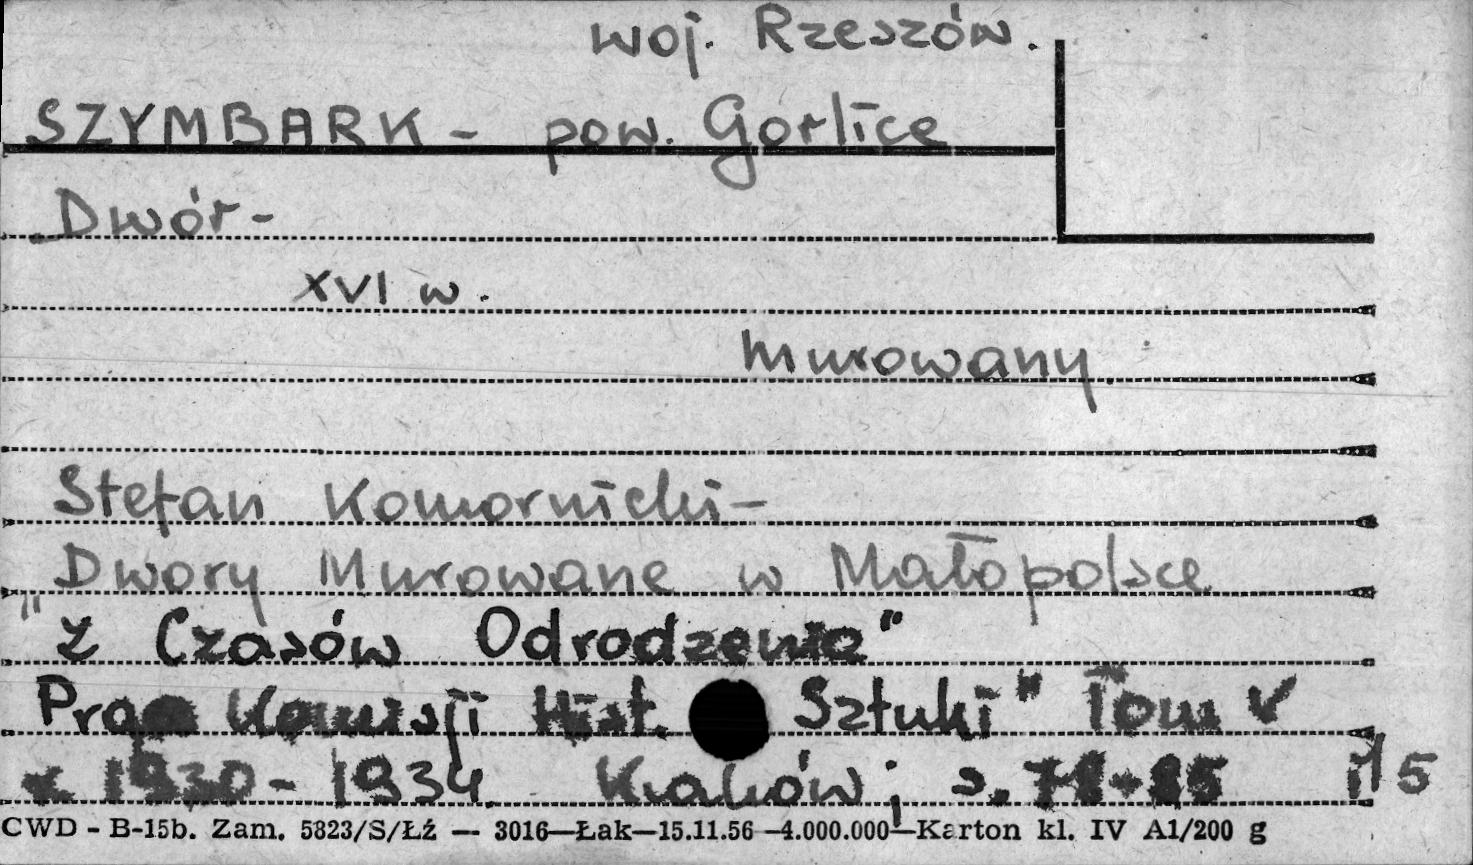 woj. Rzeszów.
SZYMBARK - pow. Gorlice
Dwór -
XVI w.
Murowany
Stefan Komornicki -
Dwory Murowane w Małopolsce
"Z Czasów Odrodzenia"
Prace Komisji Hist. Sztuki" Tom V
1930 - 1934. Kraków; s. il 5
CWD - B-15b. Zam. 5823/S/Łź — 3016—Łak—15.11.56 —4.000.000—Karton kl. IV A1/200 g